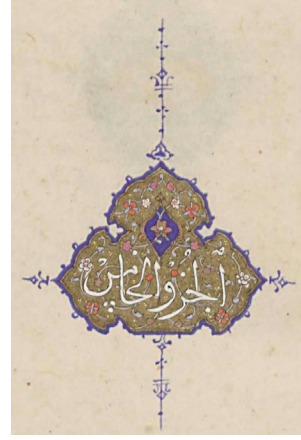 الجزؤ الخامس